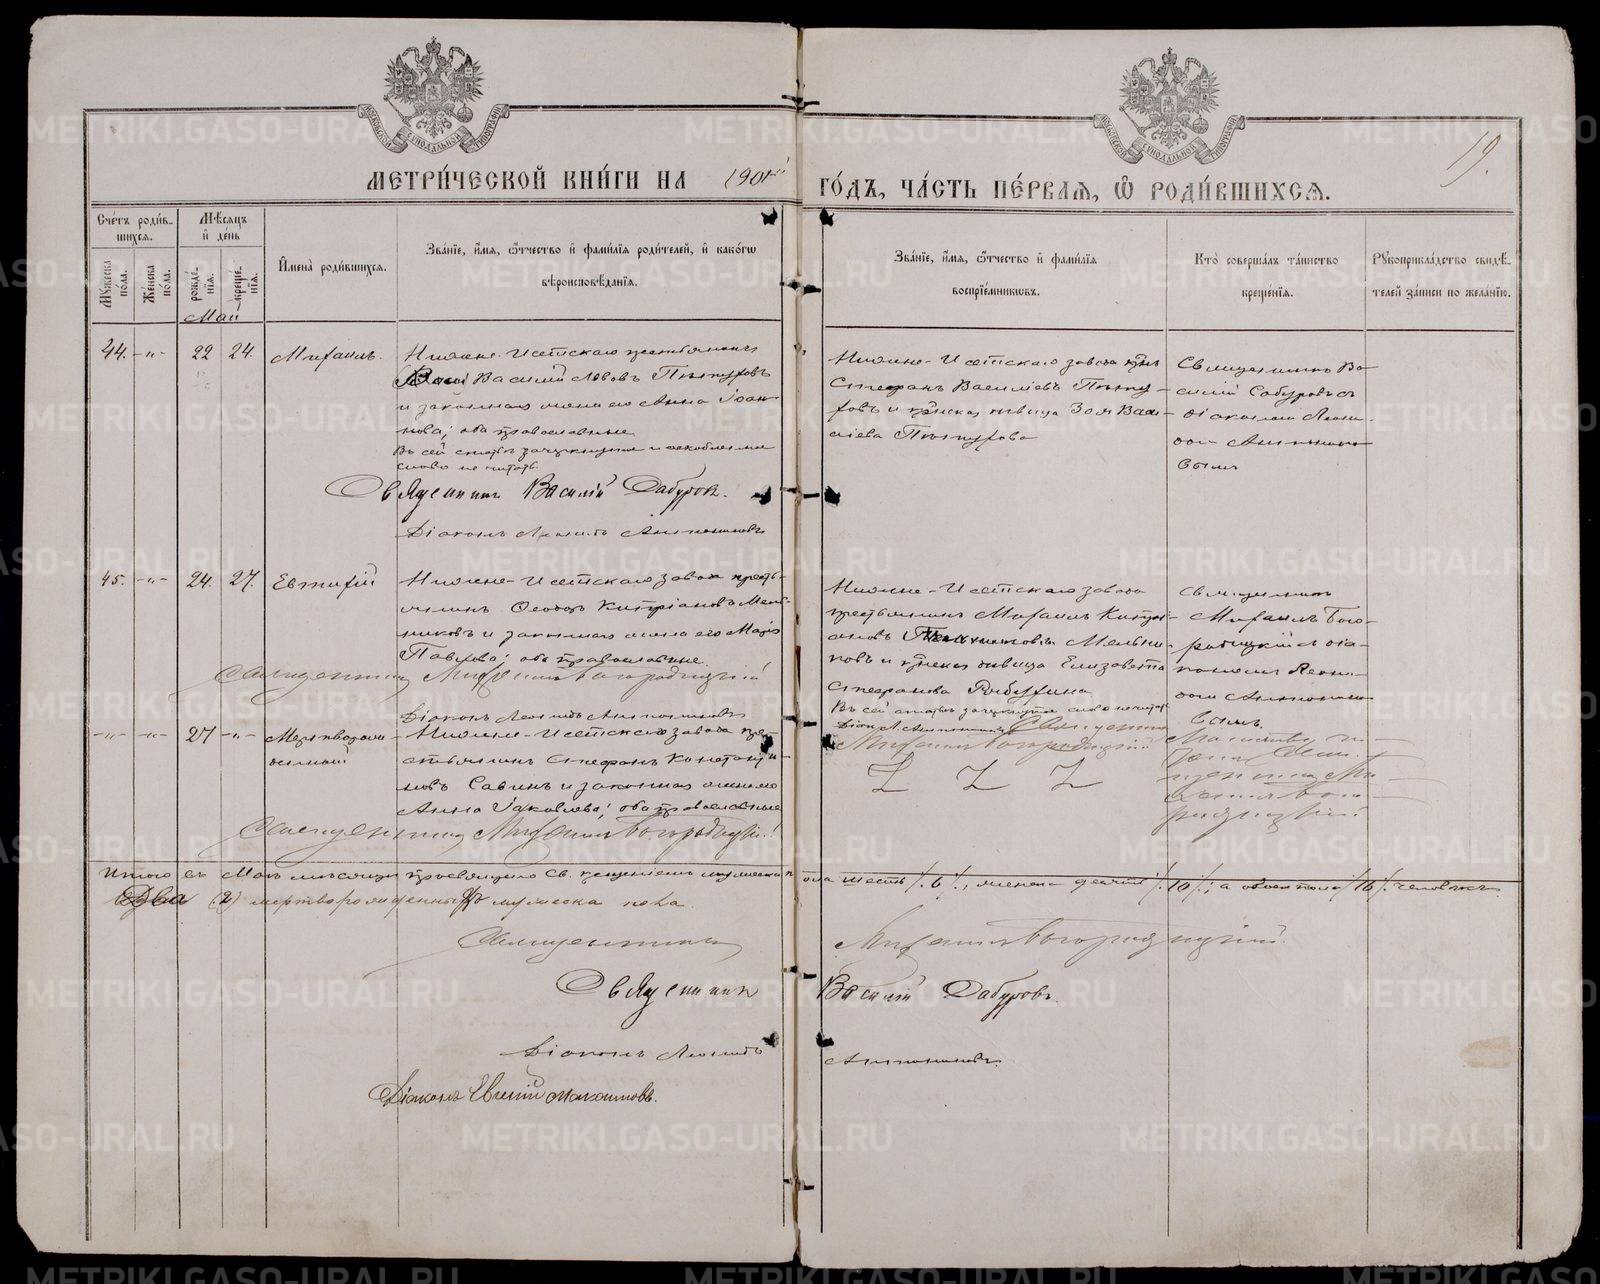 МОСКОВСКОЙ СѴНОДАЛЬНОЙ ТИПОГРАФІИ
МОСКОВСКОЙ СѴНОДАЛЬНОЙ ТИПОГРАФІИ
19.
МЕТРИЧЕСКОЙ КНИГИ НА 1901 ГОДЪ, ЧАСТЬ ПЕРВАЯ, Ѡ РОДИВШИХСЯ.
Счетъ родив-
шихся.
Мужеска пола.
Женска пола.
Мѣсяцъ и день
рожде-
нія.
креще-
нія.
Май
Имена родившихся.
Званіе, имя, ѿчество и фамилія родителей, и какогѡ
вѣроисповѣданія.
Званіе, имя, ѿчество и фамилія
воспріемникѡвъ.
Кто совершалъ таинство
крещенія.
Рукоприкладство свидѣ-
телей записи по желанію.
44. -„- 22 24. Михаилъ.
Нижне-Исетскаго крестьянинъ
Василій Львовъ Пѣтуховъ
и законная жена его Анна Іоан-
нова; оба православные
Въ сей статьѣ зачеркнутое и оскобленное
слово не читать.
Священникъ Василій Сабуровъ.
Діаконъ Леонидъ Антониновъ
Нижне-Исетскаго завода
Стефанъ Василіевъ Пѣту-
ховъ и дѣвица Зоя Васи-
ліева Пѣтухова
Священникъ Ва-
силій Сабуровъ съ
діакономъ Леони-
домъ Антонино-
вымъ
45. -„- 24. 27. Евтихій
Нижне-Исетскаго завода кресть-
янинъ Ѳеодоръ Кипріановъ Мель-
никовъ и законная жена его Марія
Павлова; оба православные.
Священникъ Михаилъ Богородицкій
Діаконъ Леонидъ Антониновъ
Нижне-Исетскаго завода
крестьянинъ Михаилъ Кипрі-
ановъ Мельни-
ковъ и дѣвица Елизавета
Стефанова
Въ сей статьѣ зачеркнутое слово не читать
Діак. Л. Антониновъ Священникъ
Михаилъ Богородицкій
Священникъ
Михаилъ Бого-
родицкій съ діа-
кономъ Леони-
домъ Антонино-
вымъ.
-„- -„- 27 -„- Мертворож-
денный
Нижне-Исетскаго завода кре-
стьянинъ Стефанъ Константи-
новъ Савинъ и законная жена его
Анна Іаковлева; оба православные
Священникъ Михаилъ Богородицкій
Z Z Z
Итого въ Маѣ мѣсяцѣ просвящено Св. крещеніемъ мужеска пола шесть /.6/., женска десять /.10/.; а обоего пола /.16/. человѣкъ
Два (2) мертворожденныхъ мужеска пола.
Священникъ Михаилъ Богородицкій.
Священникъ Василій Сабуровъ.
Діаконъ Леонидъ Антониновъ.
Діаконъ Евгеній
METRIKI.GASO-URAL.RU